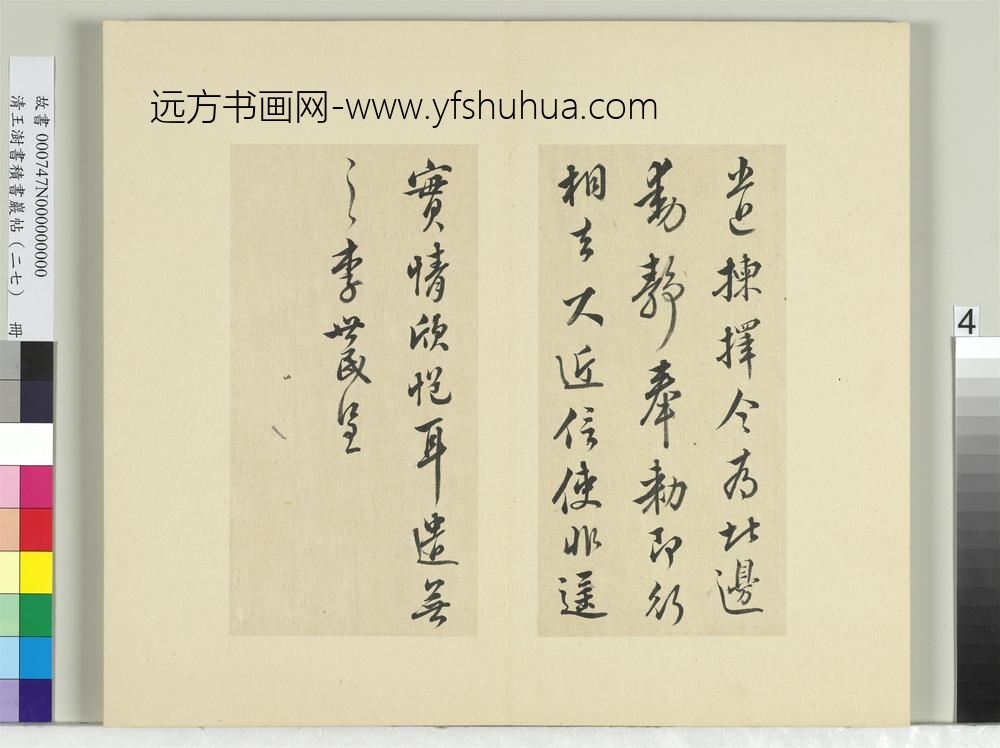 远方书画网-www.yfshuhua.com
揀擇令為北邊
動靜奉勅即行
相去不近信使非遥
實情欣悒耳遣無
李世民呈
故書 000747N000000000
清王澍書積書巖帖（二七） 冊
4